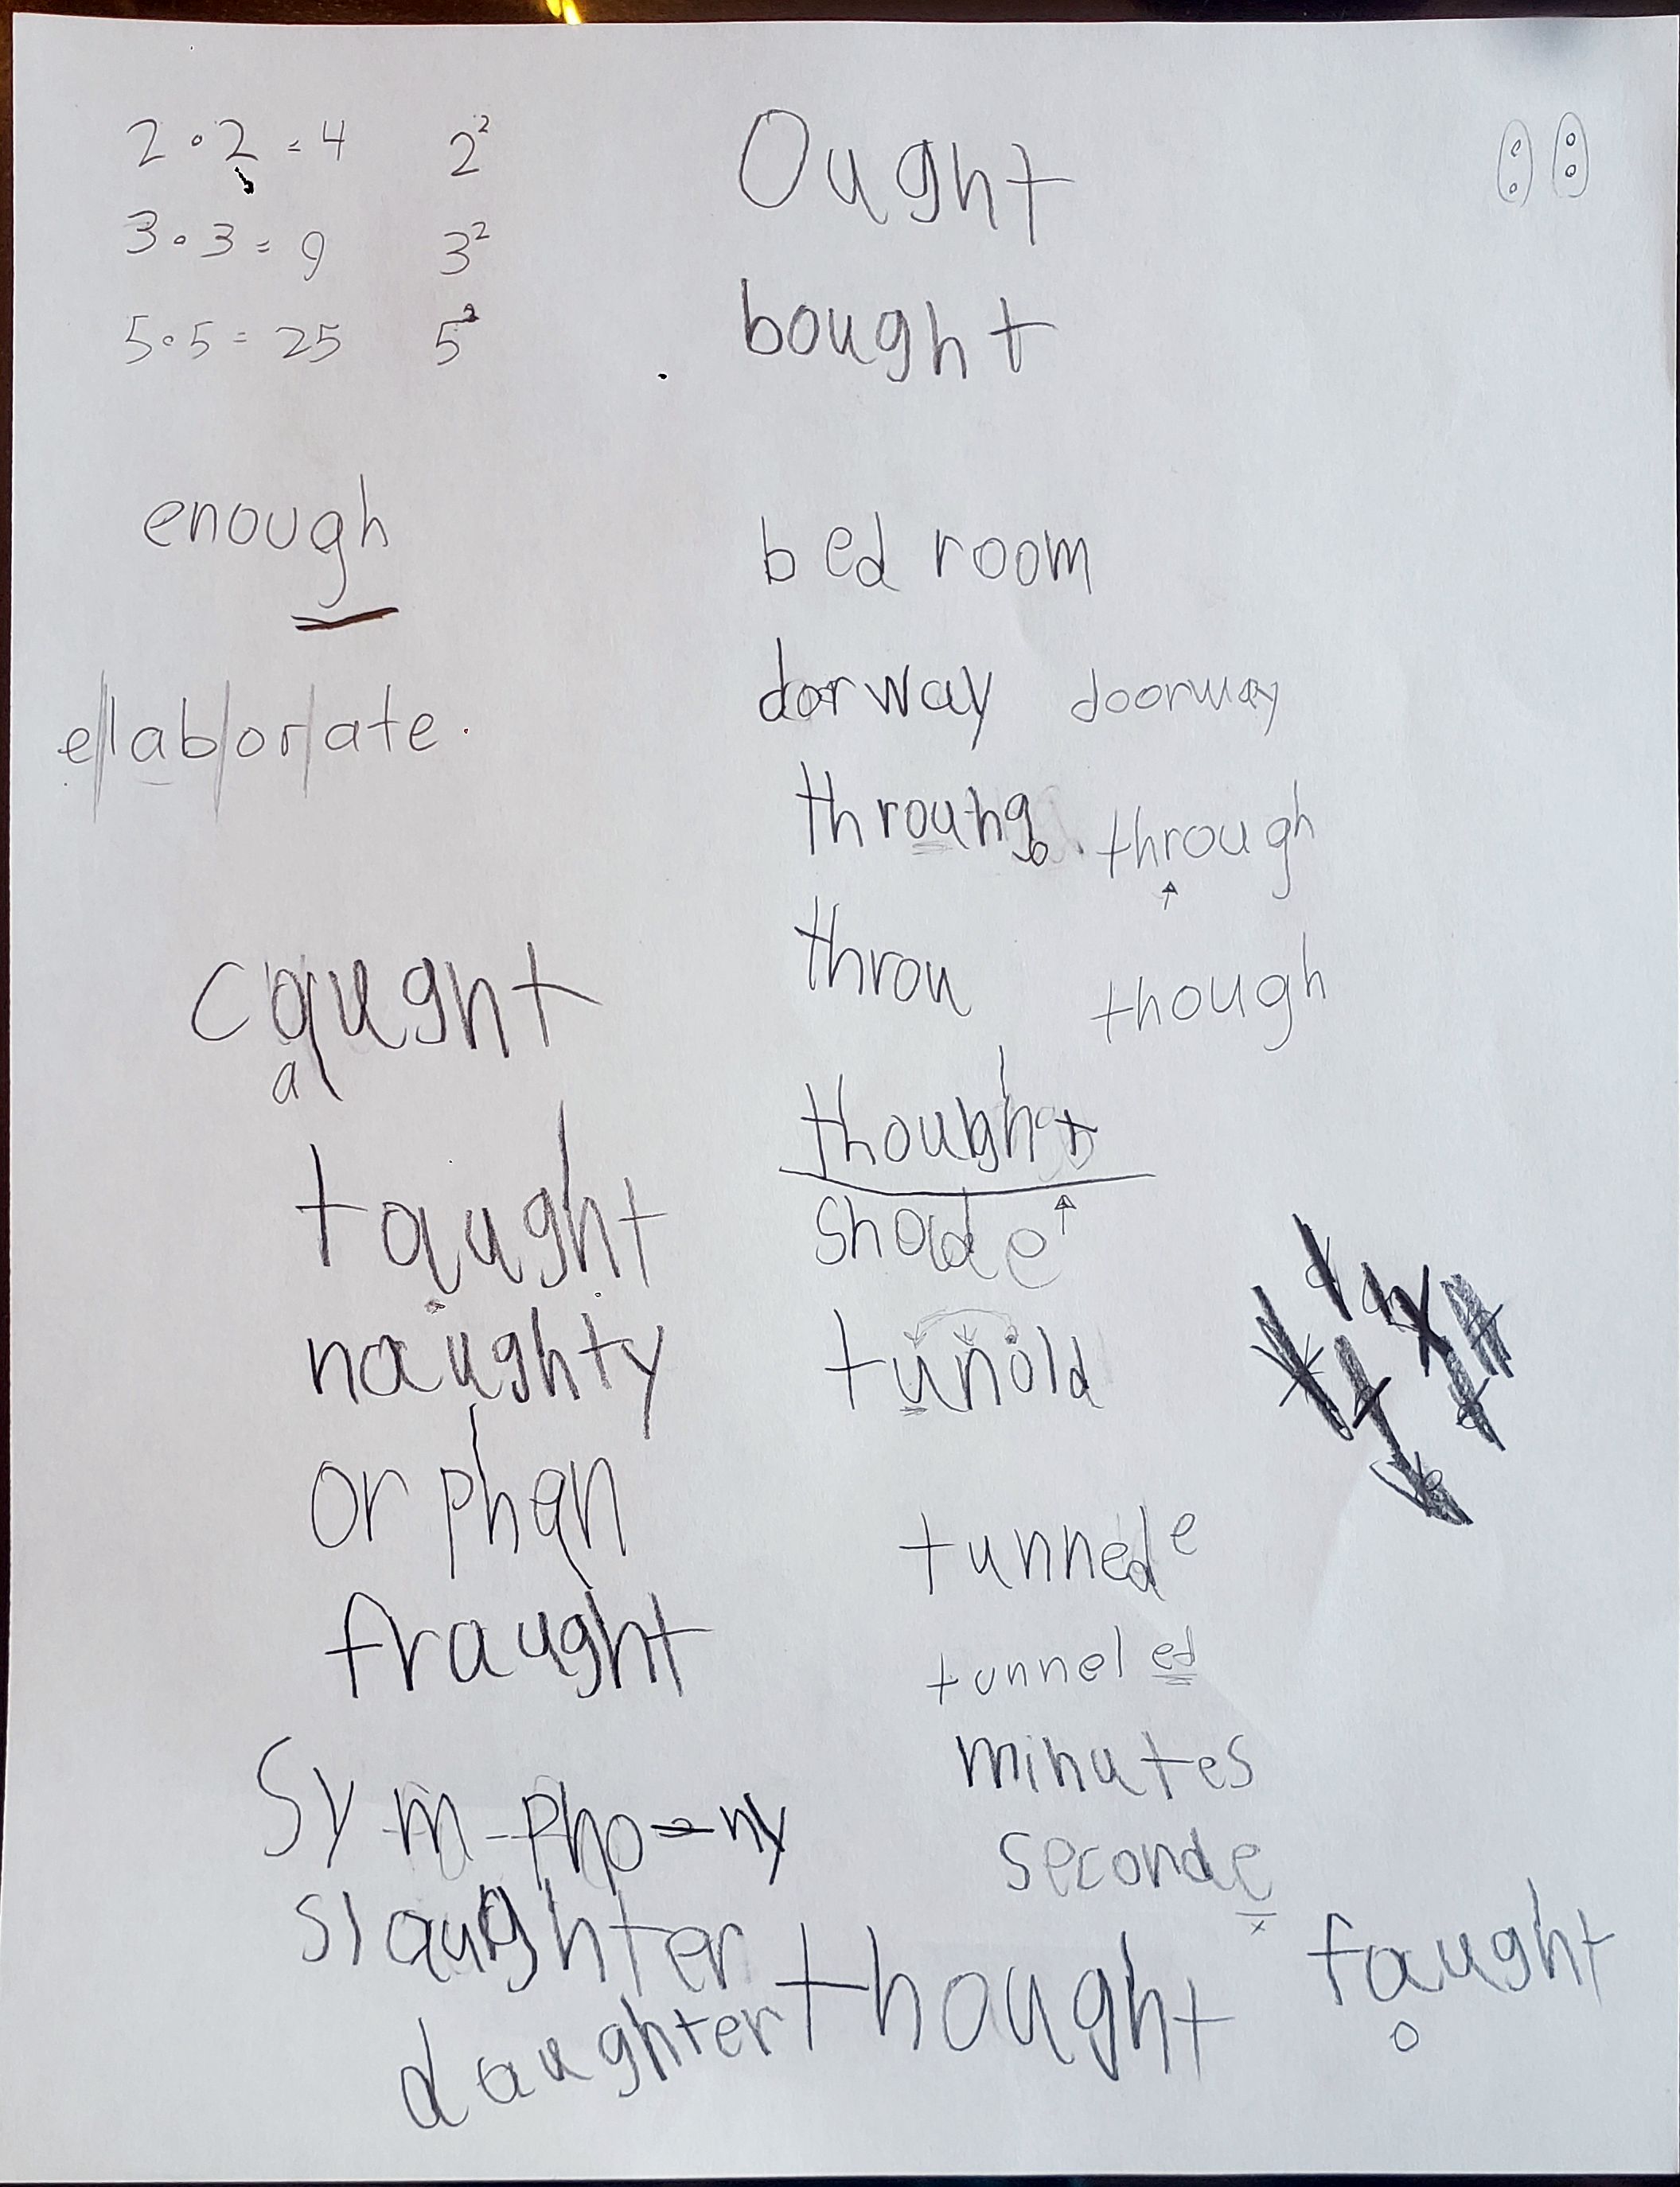 2 · 2 = 4 2²
3 · 3 = 9 3²
5 · 5 = 25 5²
Ought
bought
enough
e/lab/or/ate.
bed room
dorway doorway
throuhg through
throu though
thought
shoide
tunold
caught
a
taught
naughty
orphan
fraught
Sym-pho-ny
slaughter
daughter
tunnel e
tunneled
minutes
seconde
x
thought
faught
o